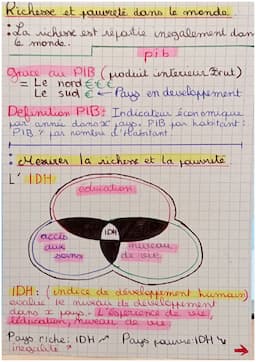 Richesse et pauvreté dans le monde
• La richesse est répartie inégalement dans
le monde.
pib
grâce au PIB (produit interieur brut)
= Le nord €€€
Le sud € ← Pays en développement
Definition PIB: Indicateur économique
par année dans x pays. PIB par habitant:
PIB ÷ par nombre d'habitant.
• Mesurer la richesse et la pauvreté
L'IDH
education
IDH
accès
aux
soins
niveau
de vie
IDH: (indice de développement humain)
évalue le niveau de développement
dans x pays. L'éspérance de vie,
l'éducation, niveau de vie.
Pays riche: IDH ↗ Pays pauvre: IDH ↘
inégalité ?